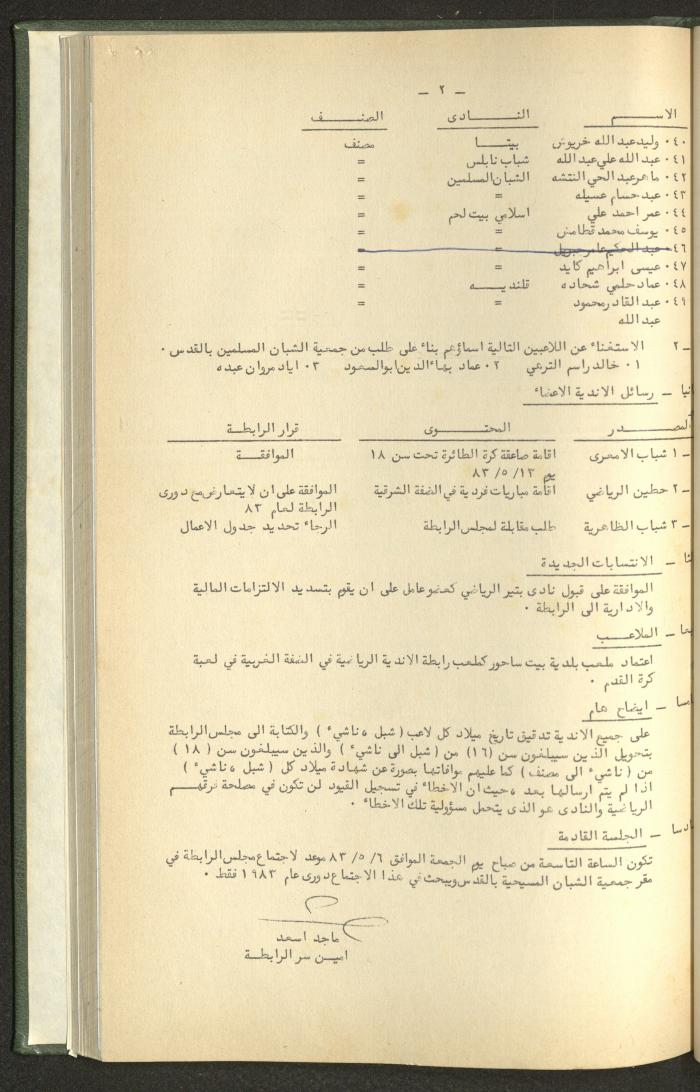 - ٢ -
الاســـم النــادى الصنــف
٤٠٠ وليد عبد الله خريوش بيتــا مصنف
٤١٠ عبد الله علي عبد الله شباب نابلس =
٤٢٠ ماهر عبد الحي النتشه الشبان المسلمين =
٤٣٠ عبد حسام عسيله = =
٤٤٠ عمر احمد علي اسلامي بيت لحم =
٤٥٠ يوسف محمد قطامش = =
٤٦٠ عبد الحكيم عامر جبريل = =
٤٧٠ عيسى ابراهيم كايد = =
٤٨٠ عماد حلمي شحاده قلنديــه =
٤٩٠ عبد القادر محمود = =
عبد الله
٢ - الاستغناء عن اللاعبين التالية اسماؤهم بناء على طلب من جمعية الشبان المسلمين بالقدس ٠
٠١ خالد راسم الترهي ٠٢ عماد بهاء الدين ابو السعود ٠٣ اياد مروان عبده
نيا - رسائل الاندية الاعضاء
المصــدر المحتــوى قرار الرابطــة
١ - شباب الامعرى اقامة صاعقة كرة الطائرة تحت سن ١٨ الموافقــة
يوم ١٣/ ٥/ ٨٣
٢ - حطين الرياضي اقامة مباريات فردية في الضفة الشرقية الموافقة على ان لا يتعارض مع دورى
الرابطة لعام ٨٣
٣ - شباب الظاهرية طلب مقابلة لمجلس الرابطة الرجاء تحديد جدول الاعمال
ثا - الانتسابات الجديدة
الموافقة على قبول نادى بتير الرياضي كعضو عامل على ان يقوم بتسديد الالتزامات المالية
والادارية الى الرابطة ٠
بعا - الملاعــب
اعتماد ملعب بلدية بيت ساحور كملعب رابطة الاندية الرياضية في الضفة الغربية في لعبة
كرة القدم ٠
مسا - ايضاح هام
على جميع الاندية تدقيق تاريخ ميلاد كل لاعب ( شبل ، ناشيء ) والكتابة الى مجلس الرابطة
بتحويل الذين سيبلغون سن (١٦) من ( شبل الى ناشيء ) والذين سيبلغون سن ( ١٨ )
من ( ناشيء الى مصنف ) كما عليهم موافاتها بصورة عن شهادة ميلاد كل ( شبل ، ناشيء )
اذا لم يتم ارسالها بعد ، حيث ان الاخطاء في تسجيل القيود لن تكون في مصلحة فرقهــم
الرياضية والنادى هو الذى يتحمل مسؤولية تلك الاخطاء ٠
ادسا - الجلسة القادمة
تكون الساعة التاسعة من صباح يوم الجمعة الموافق ٦/ ٥/ ٨٣ موعد لاجتماع مجلس الرابطة في
مقر جمعية الشبان المسيحية بالقدس ويبحث في هذا الاجتماع دورى عام ١٩٨٣ فقط ٠
ماجد اسعد
اميــن سر الرابطــة